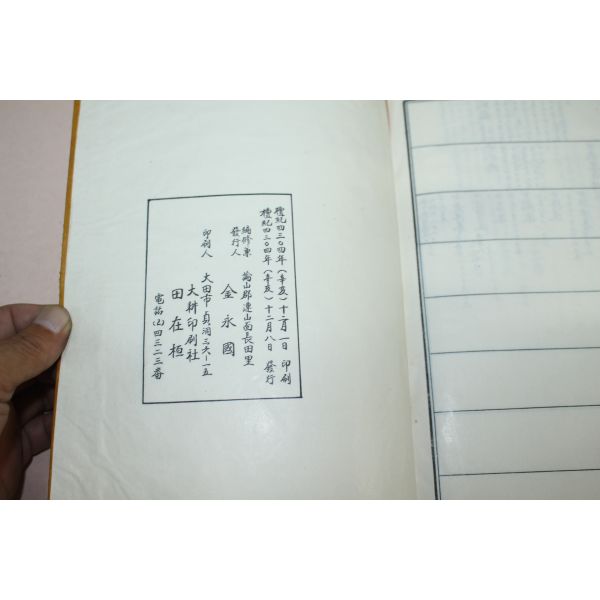 檀紀四三〇四年(辛亥)十二月一日 印刷
檀紀四三〇四年(辛亥)十二月八日 發行
編修兼發行人 論山郡連山面長田里
金永國
印刷人 大田市貞洞三六—一五
大耕印刷社
田在恒
電話(2)四三二三番